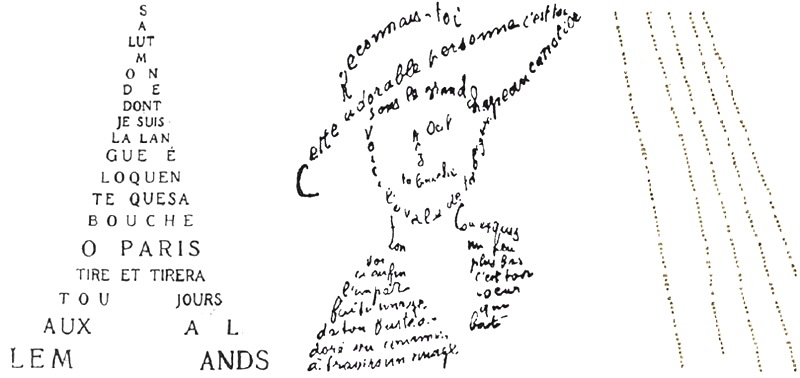 S
A
LUT
M
O N
D E
DONT
JE SUIS
LA LAN
GUE É
LOQUEN
TE QUESA
BOUCHE
O PARIS
TIRE ET TIRERA
TOU JOURS
AUX A L
LEM ANDS
Reconnais-toi
Cette adorable personne c'est toi
sous le grand chapeau canotier
Œil
Voici
l'ovale de ta figure
ton
cou exquis
Voi
ci enfin
l'impar
faite image
de ton buste
à travers un nuage
un peu
plus bas
c'est ton
cœur
qui
bat